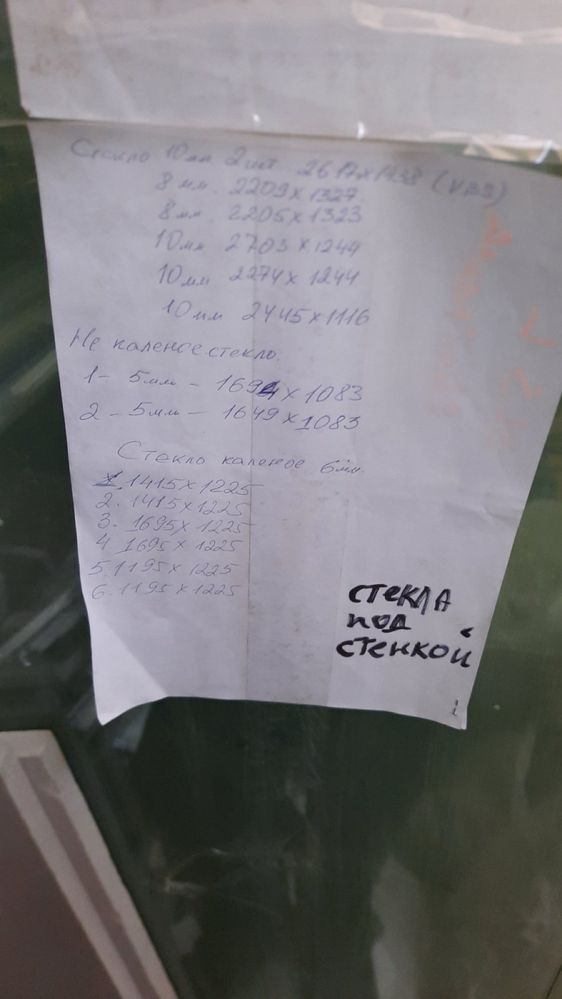 Стекло 10мм 2шт. 2617х1238 (VBS)
8 мм. 2209х1327
8мм. 2205х1323
10мм 2703х1244
10мм 2274х1244
10мм 2445х1116
Не каленое стекло.
1- 5мм - 1694х1083
2 - 5мм - 1649х1083
Стекло каленое 6мм.
1. 1415х1225
2. 1415х1225
3. 1695х1225
4 1695х1225
5. 1195х1225
6. 1195х1225
СТЕКЛА
ПОД
СТЕНКОЙ